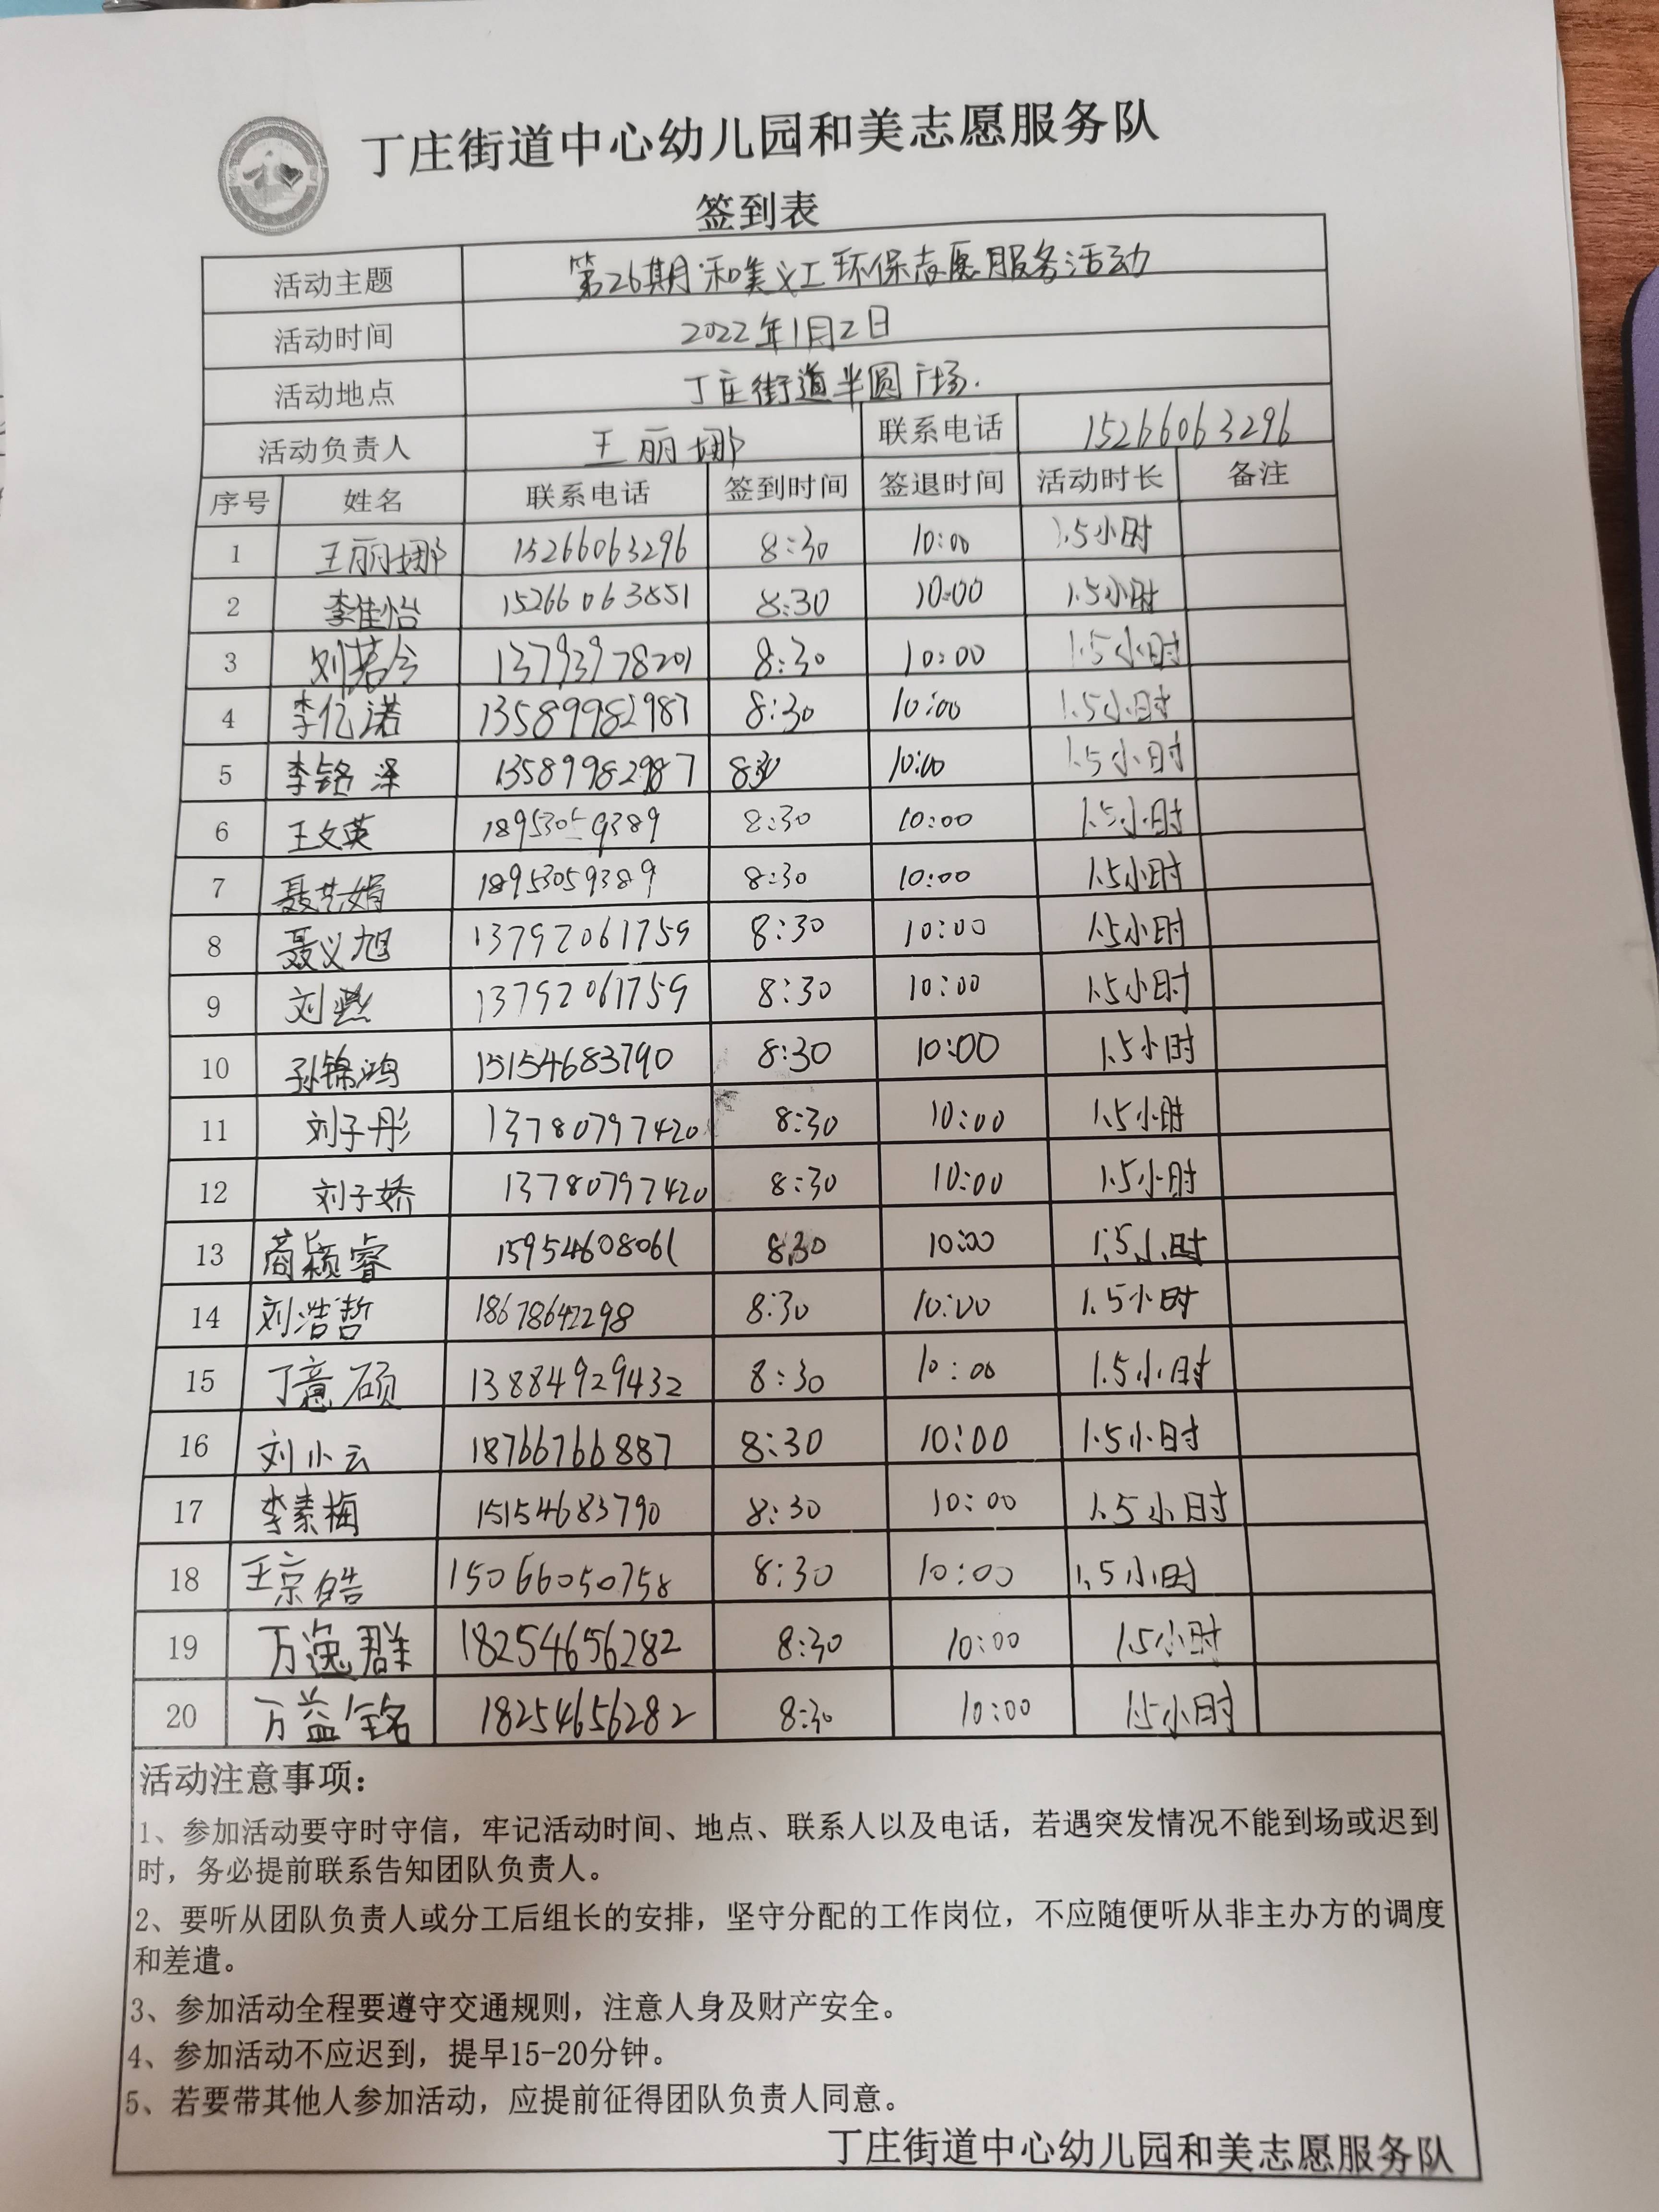 丁庄街道中心幼儿园和美志愿服务队
签到表
活动主题 第26期和美义工环保志愿服务活动
活动时间 2022年1月2日
活动地点 丁庄街道半圆广场.
活动负责人 王丽娜 联系电话 15266063296
序号 姓名 联系电话 签到时间 签退时间 活动时长 备注
1 王丽娜 15266063296 8:30 10:00 1.5小时
2 李佳怡 15266063851 8:30 10:00 1.5小时
3 刘若兮 13793978201 8:30 10:00 1.5小时
4 李亿诺 13589982987 8:30 10:00 1.5小时
5 李铭泽 13589982987 8:30 10:00 1.5小时
6 王文英 18953059389 8:30 10:00 1.5小时
7 聂艺娟 18953059389 8:30 10:00 1.5小时
8 聂义旭 13792061759 8:30 10:00 1.5小时
9 刘燕 13792061759 8:30 10:00 1.5小时
10 孙锦鸿 15154683790 8:30 10:00 1.5小时
11 刘子彤 13780797420 8:30 10:00 1.5小时
12 刘子娇 13780797420 8:30 10:00 1.5小时
13 商颖睿 15954608061 8:30 10:00 1.5小时
14 刘浩哲 18678642298 8:30 10:00 1.5小时
15 丁意硕 13884929432 8:30 10:00 1.5小时
16 刘小云 18766766887 8:30 10:00 1.5小时
17 李素梅 15154683790 8:30 10:00 1.5小时
18 王京皓 15066050758 8:30 10:00 1.5小时
19 万逸群 18254656282 8:30 10:00 1.5小时
20 万益铭 18254656282 8:30 10:00 1.5小时
活动注意事项：
1、参加活动要守时守信，牢记活动时间、地点、联系人以及电话，若遇突发情况不能到场或迟到
时，务必提前联系告知团队负责人。
2、要听从团队负责人或分工后组长的安排，坚守分配的工作岗位，不应随便听从非主办方的调度
和差遣。
3、参加活动全程要遵守交通规则，注意人身及财产安全。
4、参加活动不应迟到，提早15-20分钟。
5、若要带其他人参加活动，应提前征得团队负责人同意。
丁庄街道中心幼儿园和美志愿服务队